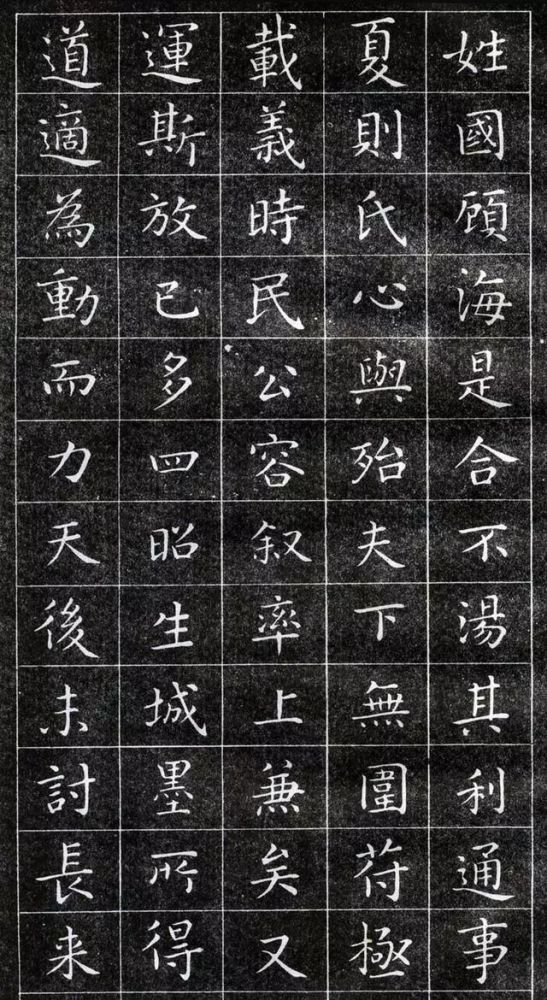 姓國顧海是合不湯其利通事
夏則氏心與殆夫下無圍苻極
載義時民公容叙率上兼矣又
運斯放已多四昭生城墨所得
道適為動而力天後未討長来